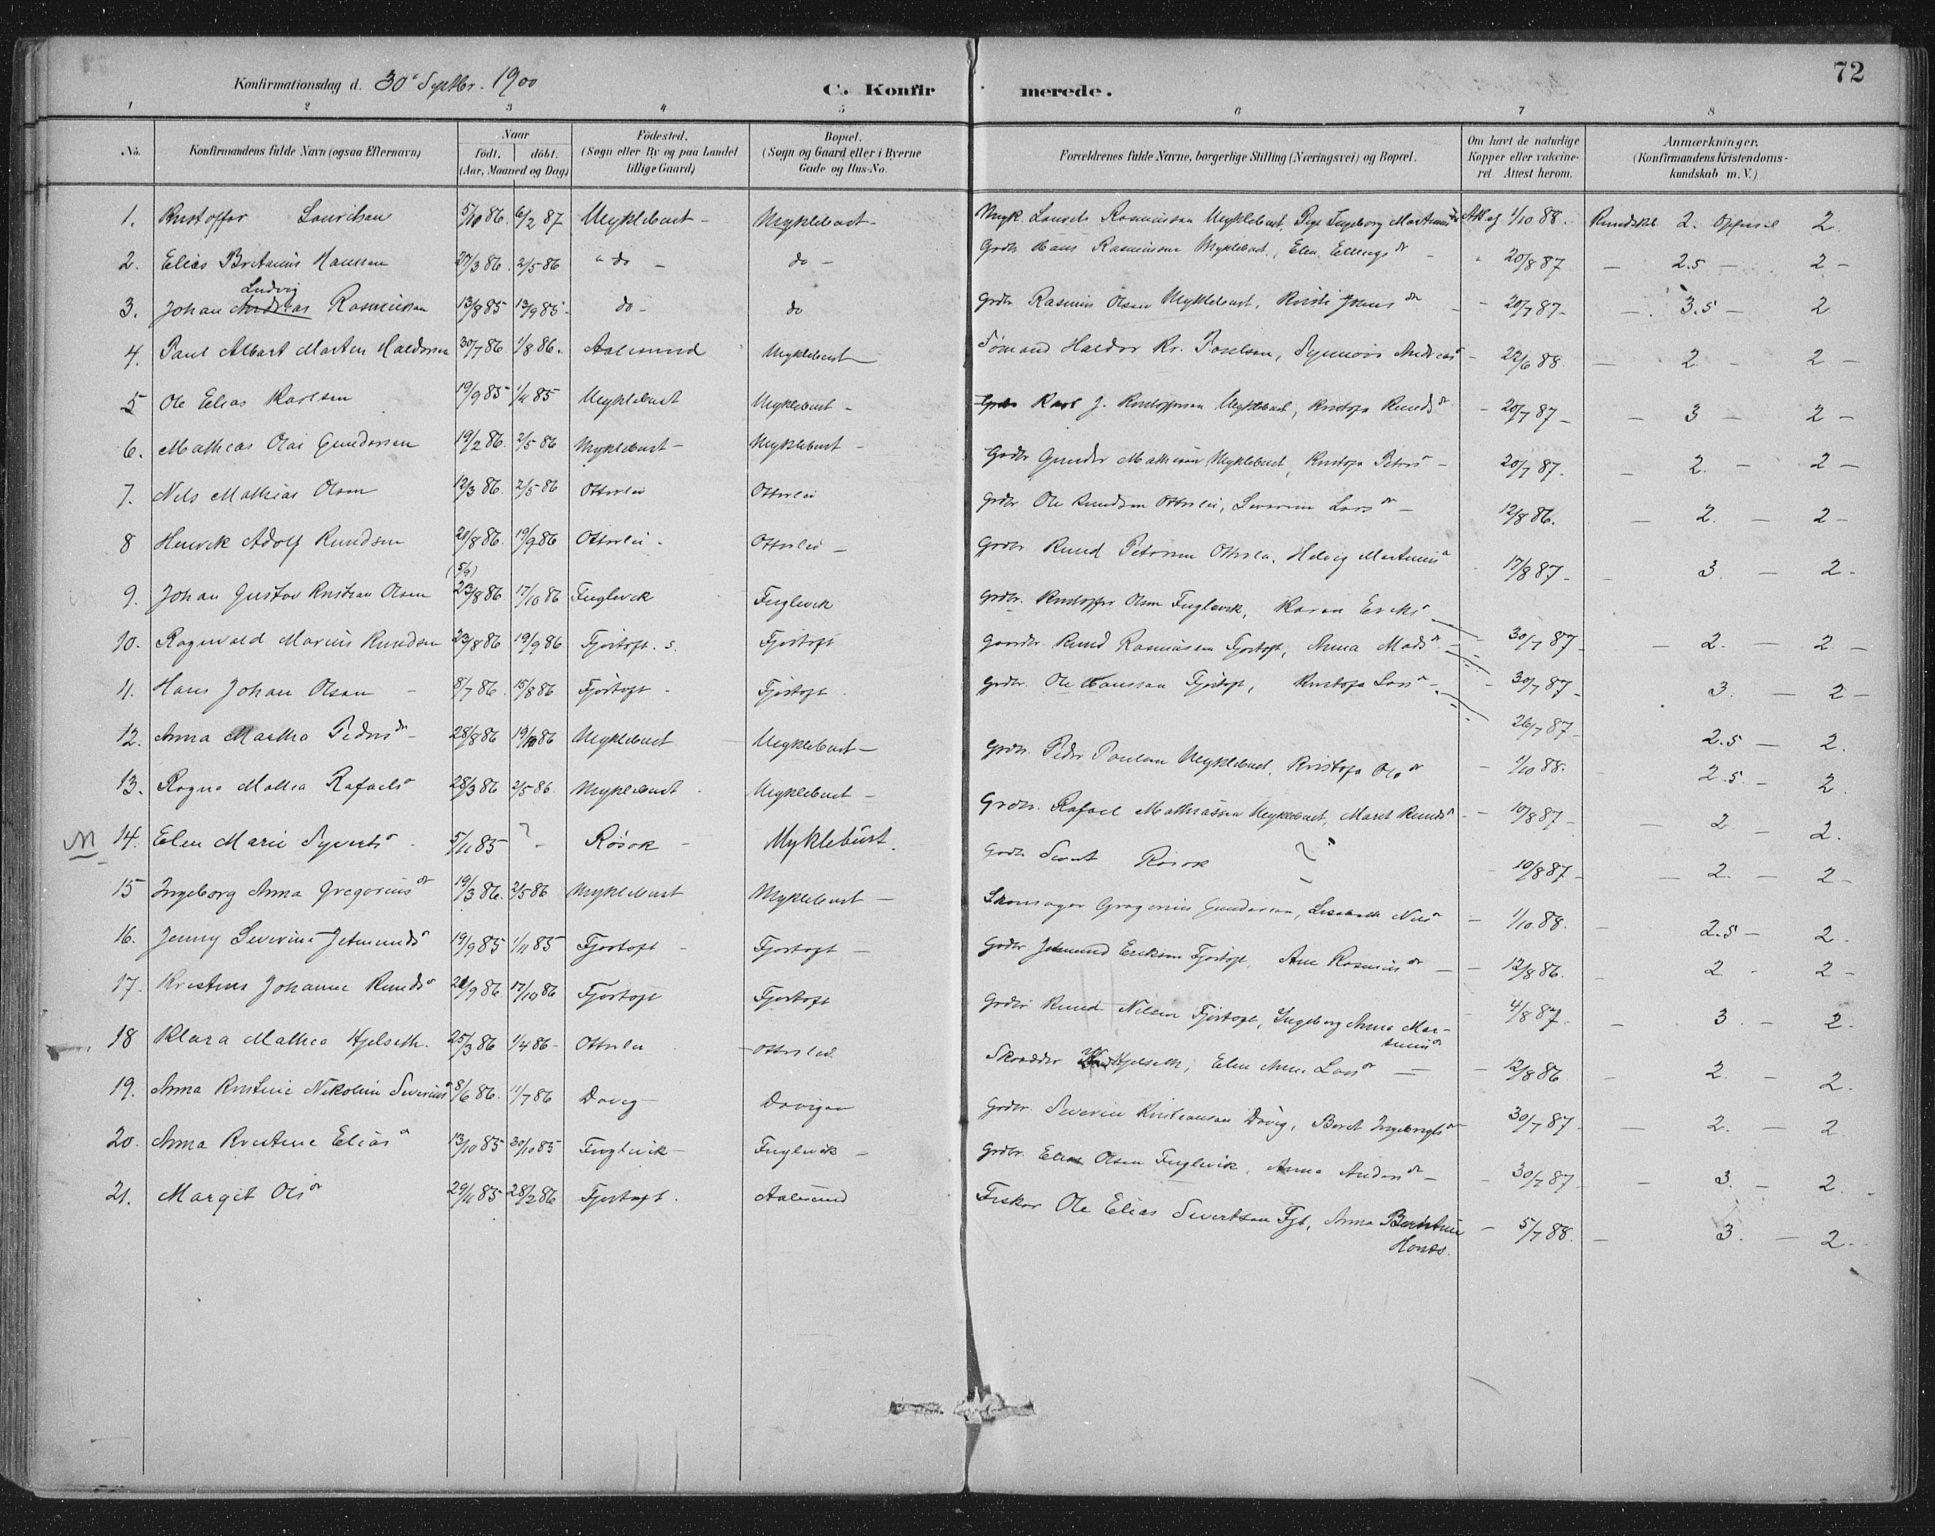 Konfirmationsdag d. 30 Septbr. 1900
C. Konfirmerede.
72
1 2 3 4 5 6 7 8
No. Konfirmandens fulde Navn (ogsaa Efternavn) Naar födt. döbt. (Aar, Maaned og Dag) Födested. (Sogn eller By og paa Landet tillige Gaard) Bopæl. (Sogn og Gaard eller i Byerne Gade og Hus-No. Forældrenes fulde Navne, borgerlige Stilling (Næringsvei) og Bopæl. Om havt de naturlige Kopper eller vakcineret. Attest herom. Anmærkninger. (Konfirmandens Kristendomskundskab m. V.)
1. Kristoffer Lauritsen 5/10 86 6/2 87 Myklebust - Myklebust - Rasmussen Myklebust, Ingeborg 1/10 88. Kundskb 2. Opførsel 2.
2. Elias Hanssen 27/3 86. 2/5 86 " do - do - Grdbr Hans Rasmussen Myklebust, Elen Ellings dr - " 20/8 87 - 2.5 - 2 -
3. Johan Andreas Ludvig Rasmussen 13/8 85 13/9 85 - do - do Grdbr Rasmus Olsen Myklebust, Jons dr - 20/7 87 - - 3.5 - 2
4. Paul Albert Martin Haldorsen 30/7 86 1/8 86. Aalesund Myklebust - Sømand Haldor Kr. Synnøve Andreas dr - 22/6 88. - 2 - 2 -
5 Ole Elias Karlsen 19/9 85 1/11 85 Myklebust Myklebust - Karl J. Kristoffersen Myklebust, Kristofa Knuds dr - 20/7 87 - - 3 - 2 -
6. Mathias Olai Gundersen 19/2 86. 2/5 86 Myklebust - Myklebust - Grdbr Gunder Mathisen Myklebust, Kristofa Peters - 20/7 87. - 2. - 2 -
7. Nils Mathias Olsen 12/3 86. 2/5 86 Otterlei Otterlei Grdbr Ole Knudsen Otterlei, Severine Lars dr - 12/8 86. - 2. - 2 -
8 Henrik Adolf Knudsen 20/8 86. 19/9 86 Otterlei - Otterlei - Grdbr Knud Petersen Otterlei, Helvig Martinus dr 17/8 87 - - 3. - 2 -
9. Johan Gustav Kristian Olsen (5/9) 23/8 86 17/10 86 Fuglevik Fuglevik Grdbr. Kristoffer Olsen Fuglevik, Karen Eriks dr - 30/7 87 - - 2. - 2 -
10. Ragnvald Marius Knudsen 23/8 86 19/9 86 Fjørtoft. s. Fjørtoft Gaardbr. Knud Rasmussen Fjørtoft, Anna Mads dr - 30/7 87 - 3. - 2 -
11. Hans Johan Olsen - 8/7 86. 15/8 86 Fjørtoft - Fjørtoft - Grdbr. Ole Hanssen Fjørtoft, Kristofa Lars dr - 26/7 87 - 2.5 - 2.
12. Anna Martha Peders dr - 28/8 86 19/10 86 Myklebust Myklebust - Grdbr. Peder Paulsen Myklebust, Kristofa Ols dr - 1/10 88. - 2.5 - 2.
13. Ragna Mathea Rafaels dr 28/3 86 2/5 86 Myklebust - Myklebust - Grdbr. Rafael Mathiassen Myklebust, Maret Knuds dr - 10/8 87 - - 2 - 2.
M 14. Elen Marie Syverts dr - 5/11 85 ? - Røsok - Myklebust. Grdbr Røsok ? - 10/8 87 - - 2. - 2 -
15 Ingeborg Anna Gregorius dr 19/3 86. 2/5 86 Myklebust Myklebust - Skomager Gregorius Gundersen, Nils dr - 1/10 88. - 2.5 - 2.
16. Jenny Severine Jetmunds dr 19/9 85 1/11 85 Fjørtoft - Fjørtoft - Grdbr Jetmund Eriksen Fjørtoft, Ane Rasmus dr - - 12/8 86. - 2 - 2 -
17. Kristine Johanne Knuds dr 21/9 86 17/10 86 Fjørtoft Fjørtoft Grdbr Knud Nilsen Fjørtoft, Ingeborg Anna Mar-
tinus dr - 4/8 87. - 3. - 2.
18 Klara Mathea Hjelseth. 25/3 86 1/4 86 - Otterlei - Otterlei Skrædder Hjelseth, Elen Ane Lars dr - - 12/8 86 - 2. - 2.
19. Anna Kristine Nikoline Severins dr 8/6 86. 11/7 86 Davig - Davigen Grdbr. Severin Kristiansen Davig, Beret Ingebrigts dr 30/7 87 - - 2. - 2.
20. Anna Kristine Elias dr 13/10 85 30/10 85 Fuglevik - Fuglevik - Grdbr. Elias Olsen Fuglevik, Anna Anders dr - - 30/7 87 - - 3. - 2.
21. Margit Ols dr 29/11 85 28/2 86 Fjørtoft. Aalesund Fisker Ole Elias Sivertsen Fjt, Anna
Hans. - 5/7 88. - 3. - 2.